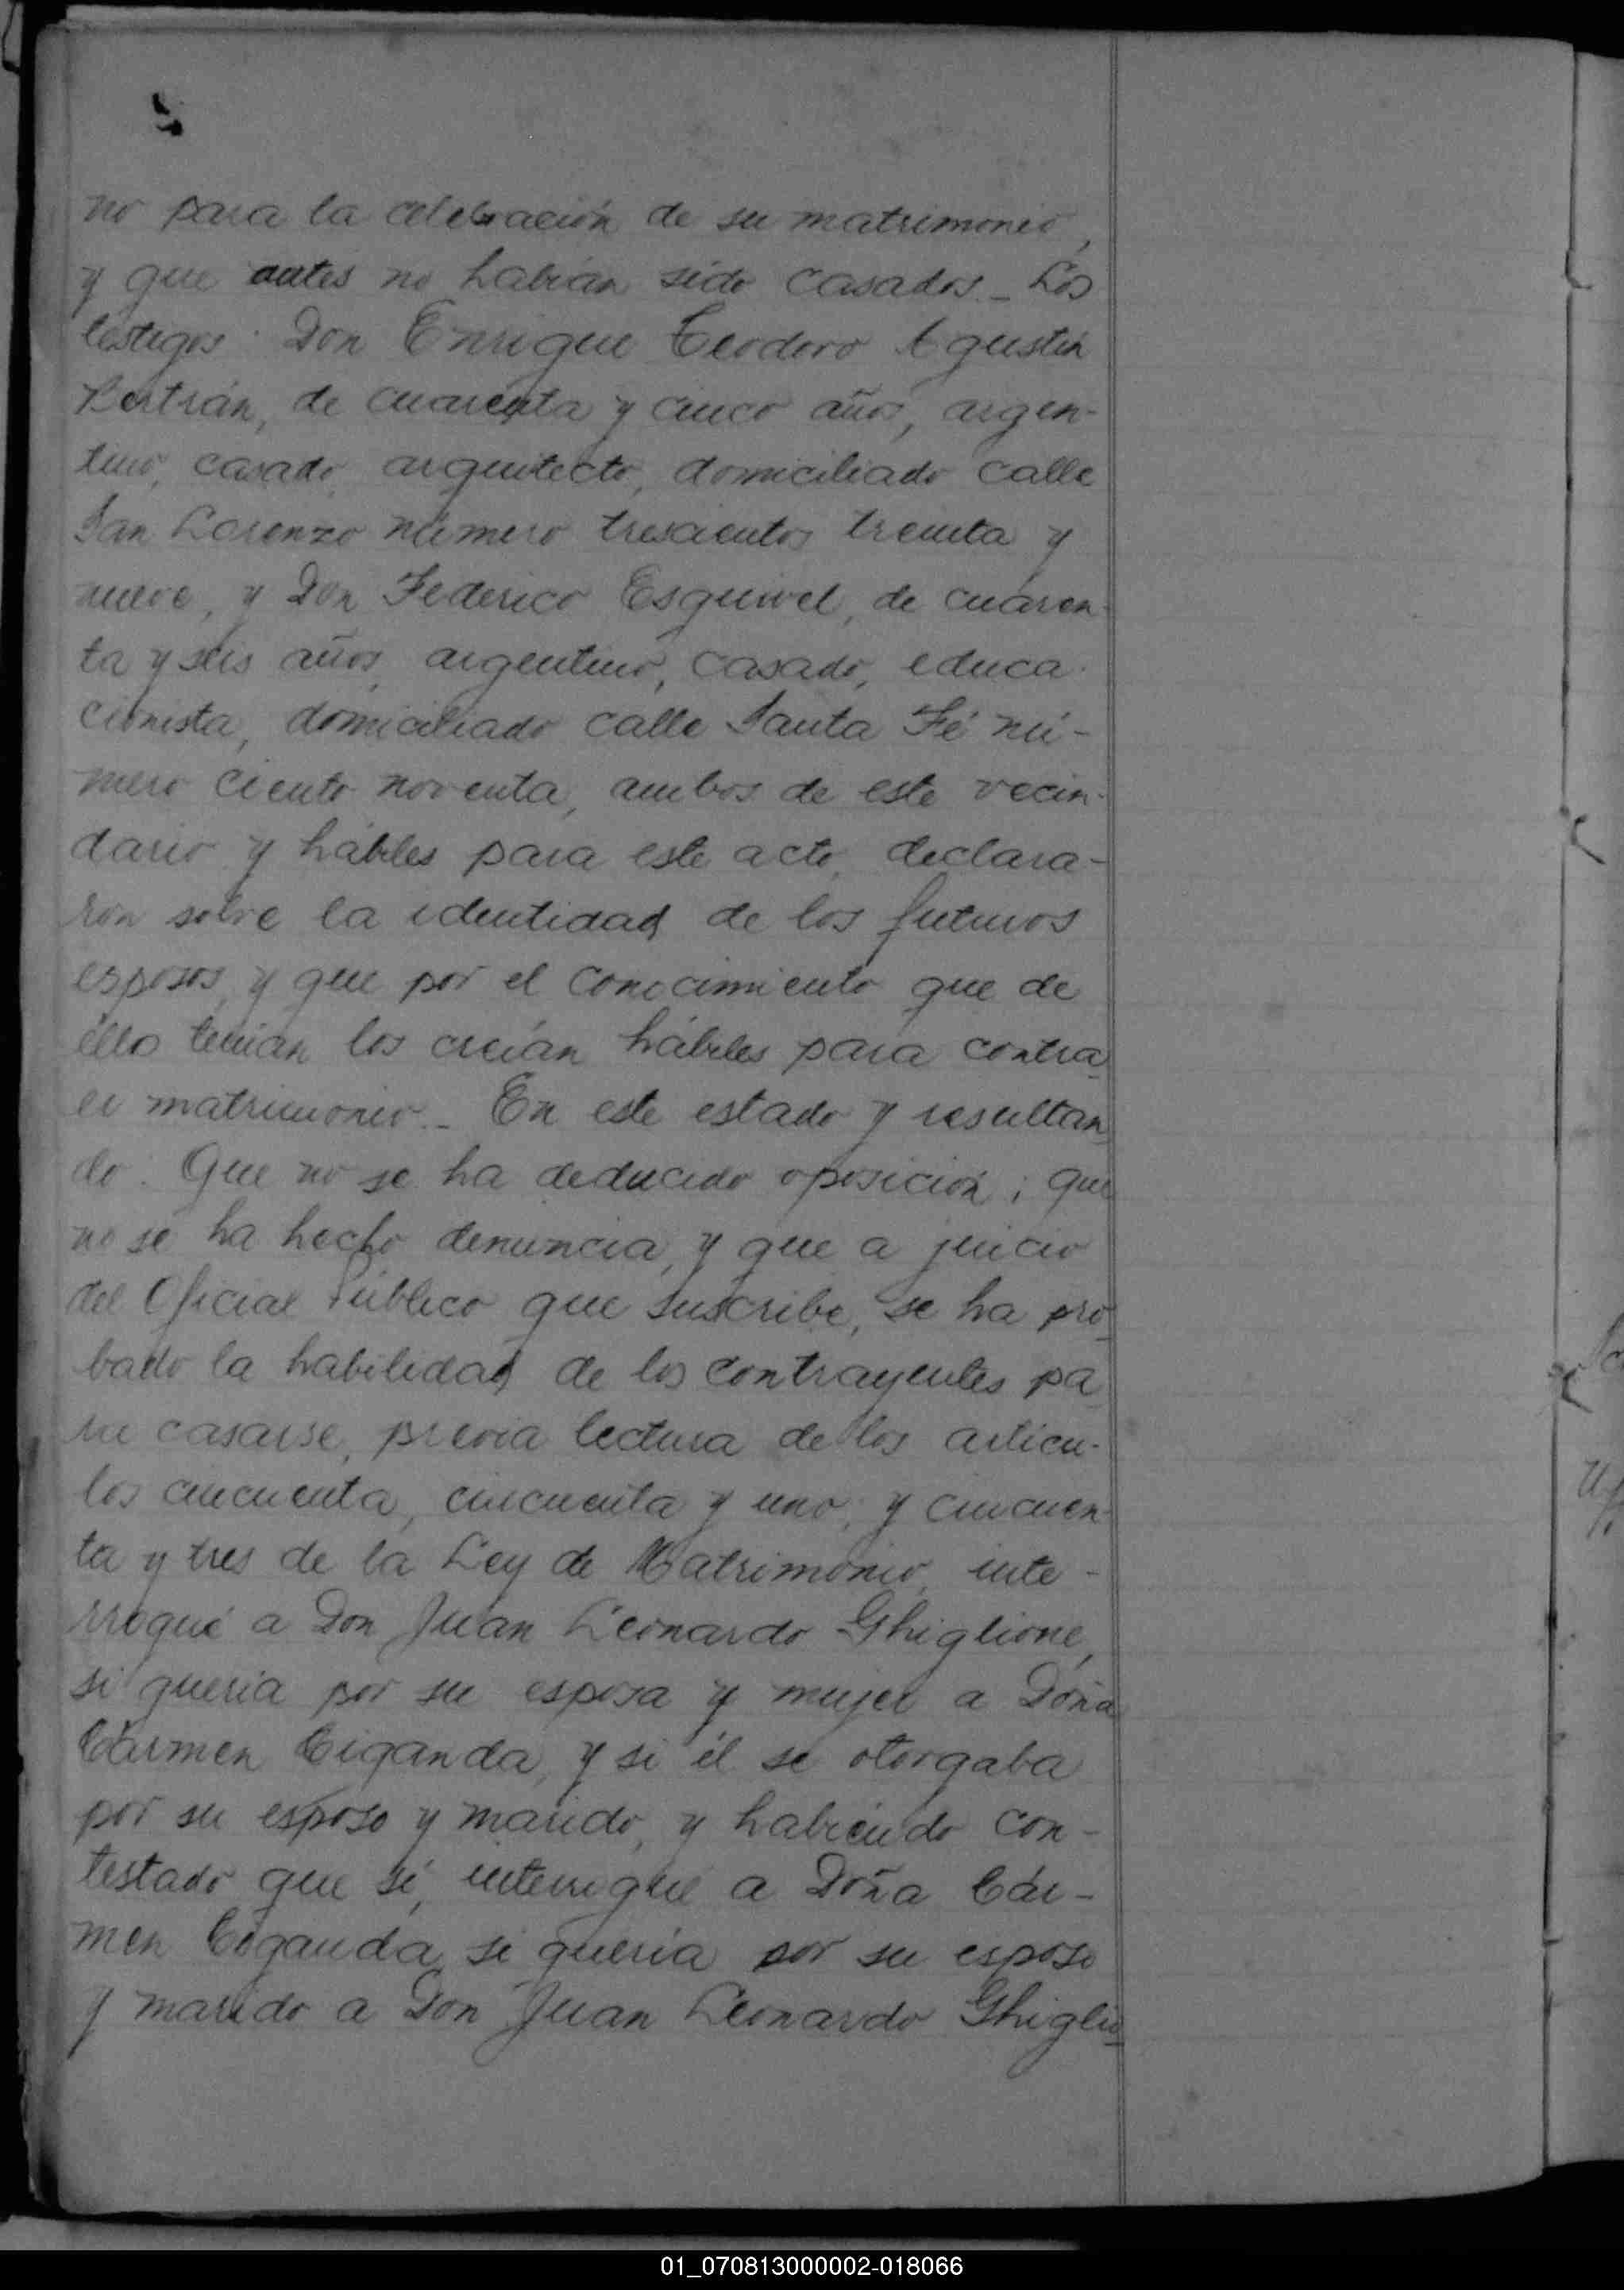 no para la celebración de su matrimonio,
y que antes no habían sido casados._ Los
testigos: Don Enrique Teodoro Agustín
Bertrán, de cuarenta y cinco años, argen-
tino, casado, arquitecto, domiciliado calle
San Lorenzo número trescientos treinta y
nueve, y Don Federico Esquivel, de cuaren-
ta y seis años, argentino, casado, educa-
cionista, domiciliado calle Santa Fé nú-
mero ciento noventa, ambos de este vecin-
dario y hábiles para este acto, declara-
ron sobre la identidad de los futuros
esposos, y que por el conocimiento que de
ello tenían los creían hábiles para contra
er matrimonio._ En este estado y resultan
do: Que no se ha deducido oposición; que
no se ha hecho denuncia, y que a juicio
del Oficial Público que suscribe, se ha pro
bado la habilidad de los contrayentes pa
ra casarse, previa lectura de los artícu-
los cincuenta, cincuenta y uno, y cincuen-
ta y tres de la Ley de Matrimonio, inte-
rrogué a Don Juan Leonardo Ghiglione,
si quería por su esposa y mujer a Doña
Cármen Ciganda, y si él se otorgaba
por su esposo y marido, y habiendo con-
testado que sí, interrogué a Doña Cár-
men Ciganda, si quería por su esposo
y marido a Don Juan Leonardo Ghiglio
01_070813000002-018066